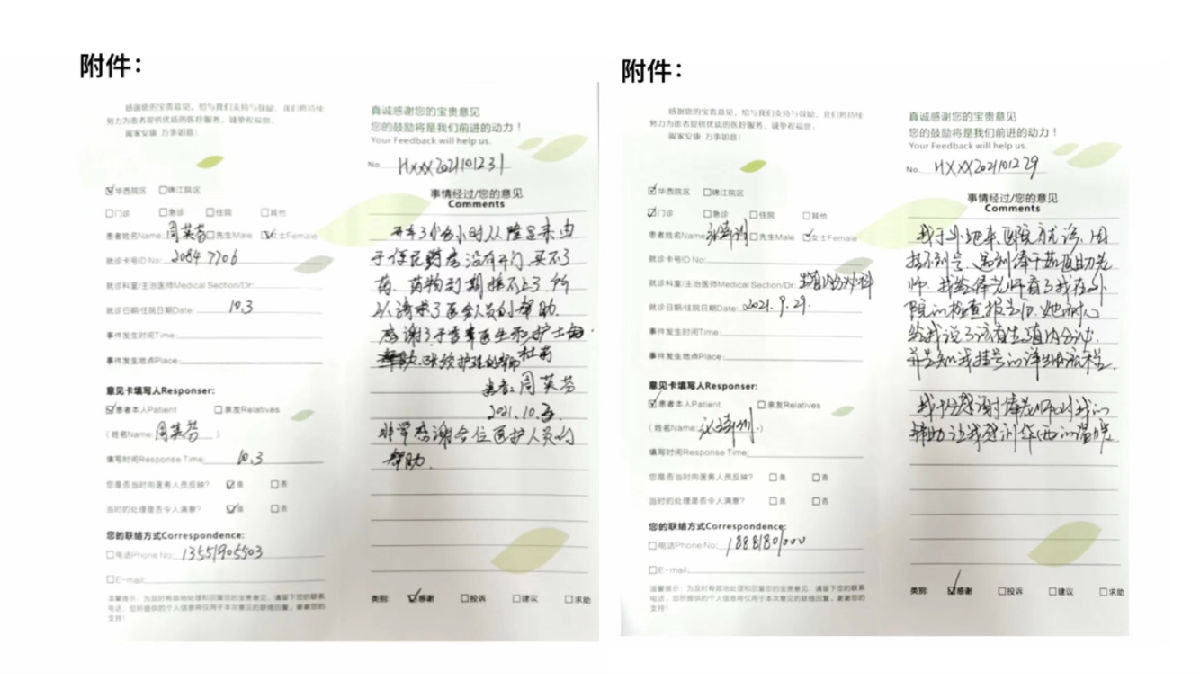 附件：
感谢您的宝贵意见，给与我们支持与鼓励，我们将持续
努力为患者提供优质的医疗服务。诚挚祝福您，
阖家安康 万事如意！
☑华西院区 ☐锦江院区
☐门诊 ☐急诊 ☐住院 ☐其他
患者姓名Name: 周英芬 ☐先生Male ☑女士Female
就诊卡号ID No: 20847706
就诊科室/主治医师Medical Section/Dr:
就诊日期/住院日期Date: 10.3
事件发生时间Time:
事件发生地点Place:
意见卡填写人Responser:
☑患者本人Patient ☐亲友Relatives
(姓名Name: 周英芬 )
填写时间Response Time: 10.3
您是否当时向医务人员反映? ☑是 ☐否
当时的处理是否令人满意? ☑是 ☐否
您的联络方式Correspondence:
☐电话Phone No: 13551905503
☐E-mail:
温馨提示：为及时有效地处理和回复您的宝贵意见，请留下您的联系
电话，您所提供的个人信息将仅用于本次意见的联络回复。谢谢您的
支持！
真诚感谢您的宝贵意见
您的鼓励将是我们前进的动力！
Your Feedback will help us.
No. HXXX2021101231
事情经过/您的意见
Comments
开车3个多小时从隆昌来由
于住院药房没有开门，买不了
药，药物到期接不上了，所
以请求了医务人员的帮助。
感谢了 医生和护士的
帮助
患者：周英芬
2021.10.3
非常感谢各位医护人员的
帮助.
类别: ☑感谢 ☐投诉 ☐建议 ☐求助
附件：
感谢您的宝贵意见，给与我们支持与鼓励，我们将持续
努力为患者提供优质的医疗服务。诚挚祝福您，
阖家安康 万事如意！
☑华西院区 ☐锦江院区
☑门诊 ☐急诊 ☐住院 ☐其他
患者姓名Name: ☐先生Male ☑女士Female
就诊卡号ID No:
就诊科室/主治医师Medical Section/Dr: 生殖内分泌科
就诊日期/住院日期Date: 2021.9.29
事件发生时间Time:
事件发生地点Place:
意见卡填写人Responser:
☑患者本人Patient ☐亲友Relatives
(姓名Name: )
填写时间Response Time:
您是否当时向医务人员反映? ☐是 ☐否
当时的处理是否令人满意? ☐是 ☐否
您的联络方式Correspondence:
☐电话Phone No:
☐E-mail:
温馨提示：为及时有效地处理和回复您的宝贵意见，请留下您的联系
电话，您所提供的个人信息将仅用于本次意见的联络回复。谢谢您的
支持！
真诚感谢您的宝贵意见
您的鼓励将是我们前进的动力！
Your Feedback will help us.
No. HXXX2021101229
事情经过/您的意见
Comments
我于外地来医院就诊，因
挂不到号，遇到 老
师，我给 老师看了我在外
院的检查报告后，她耐心
给我说了该看生殖内分泌，
并告知我挂号的详细流程。
我非常感谢 老师对我的
帮助，让我感到华西的温暖。
类别: ☑感谢 ☐投诉 ☐建议 ☐求助